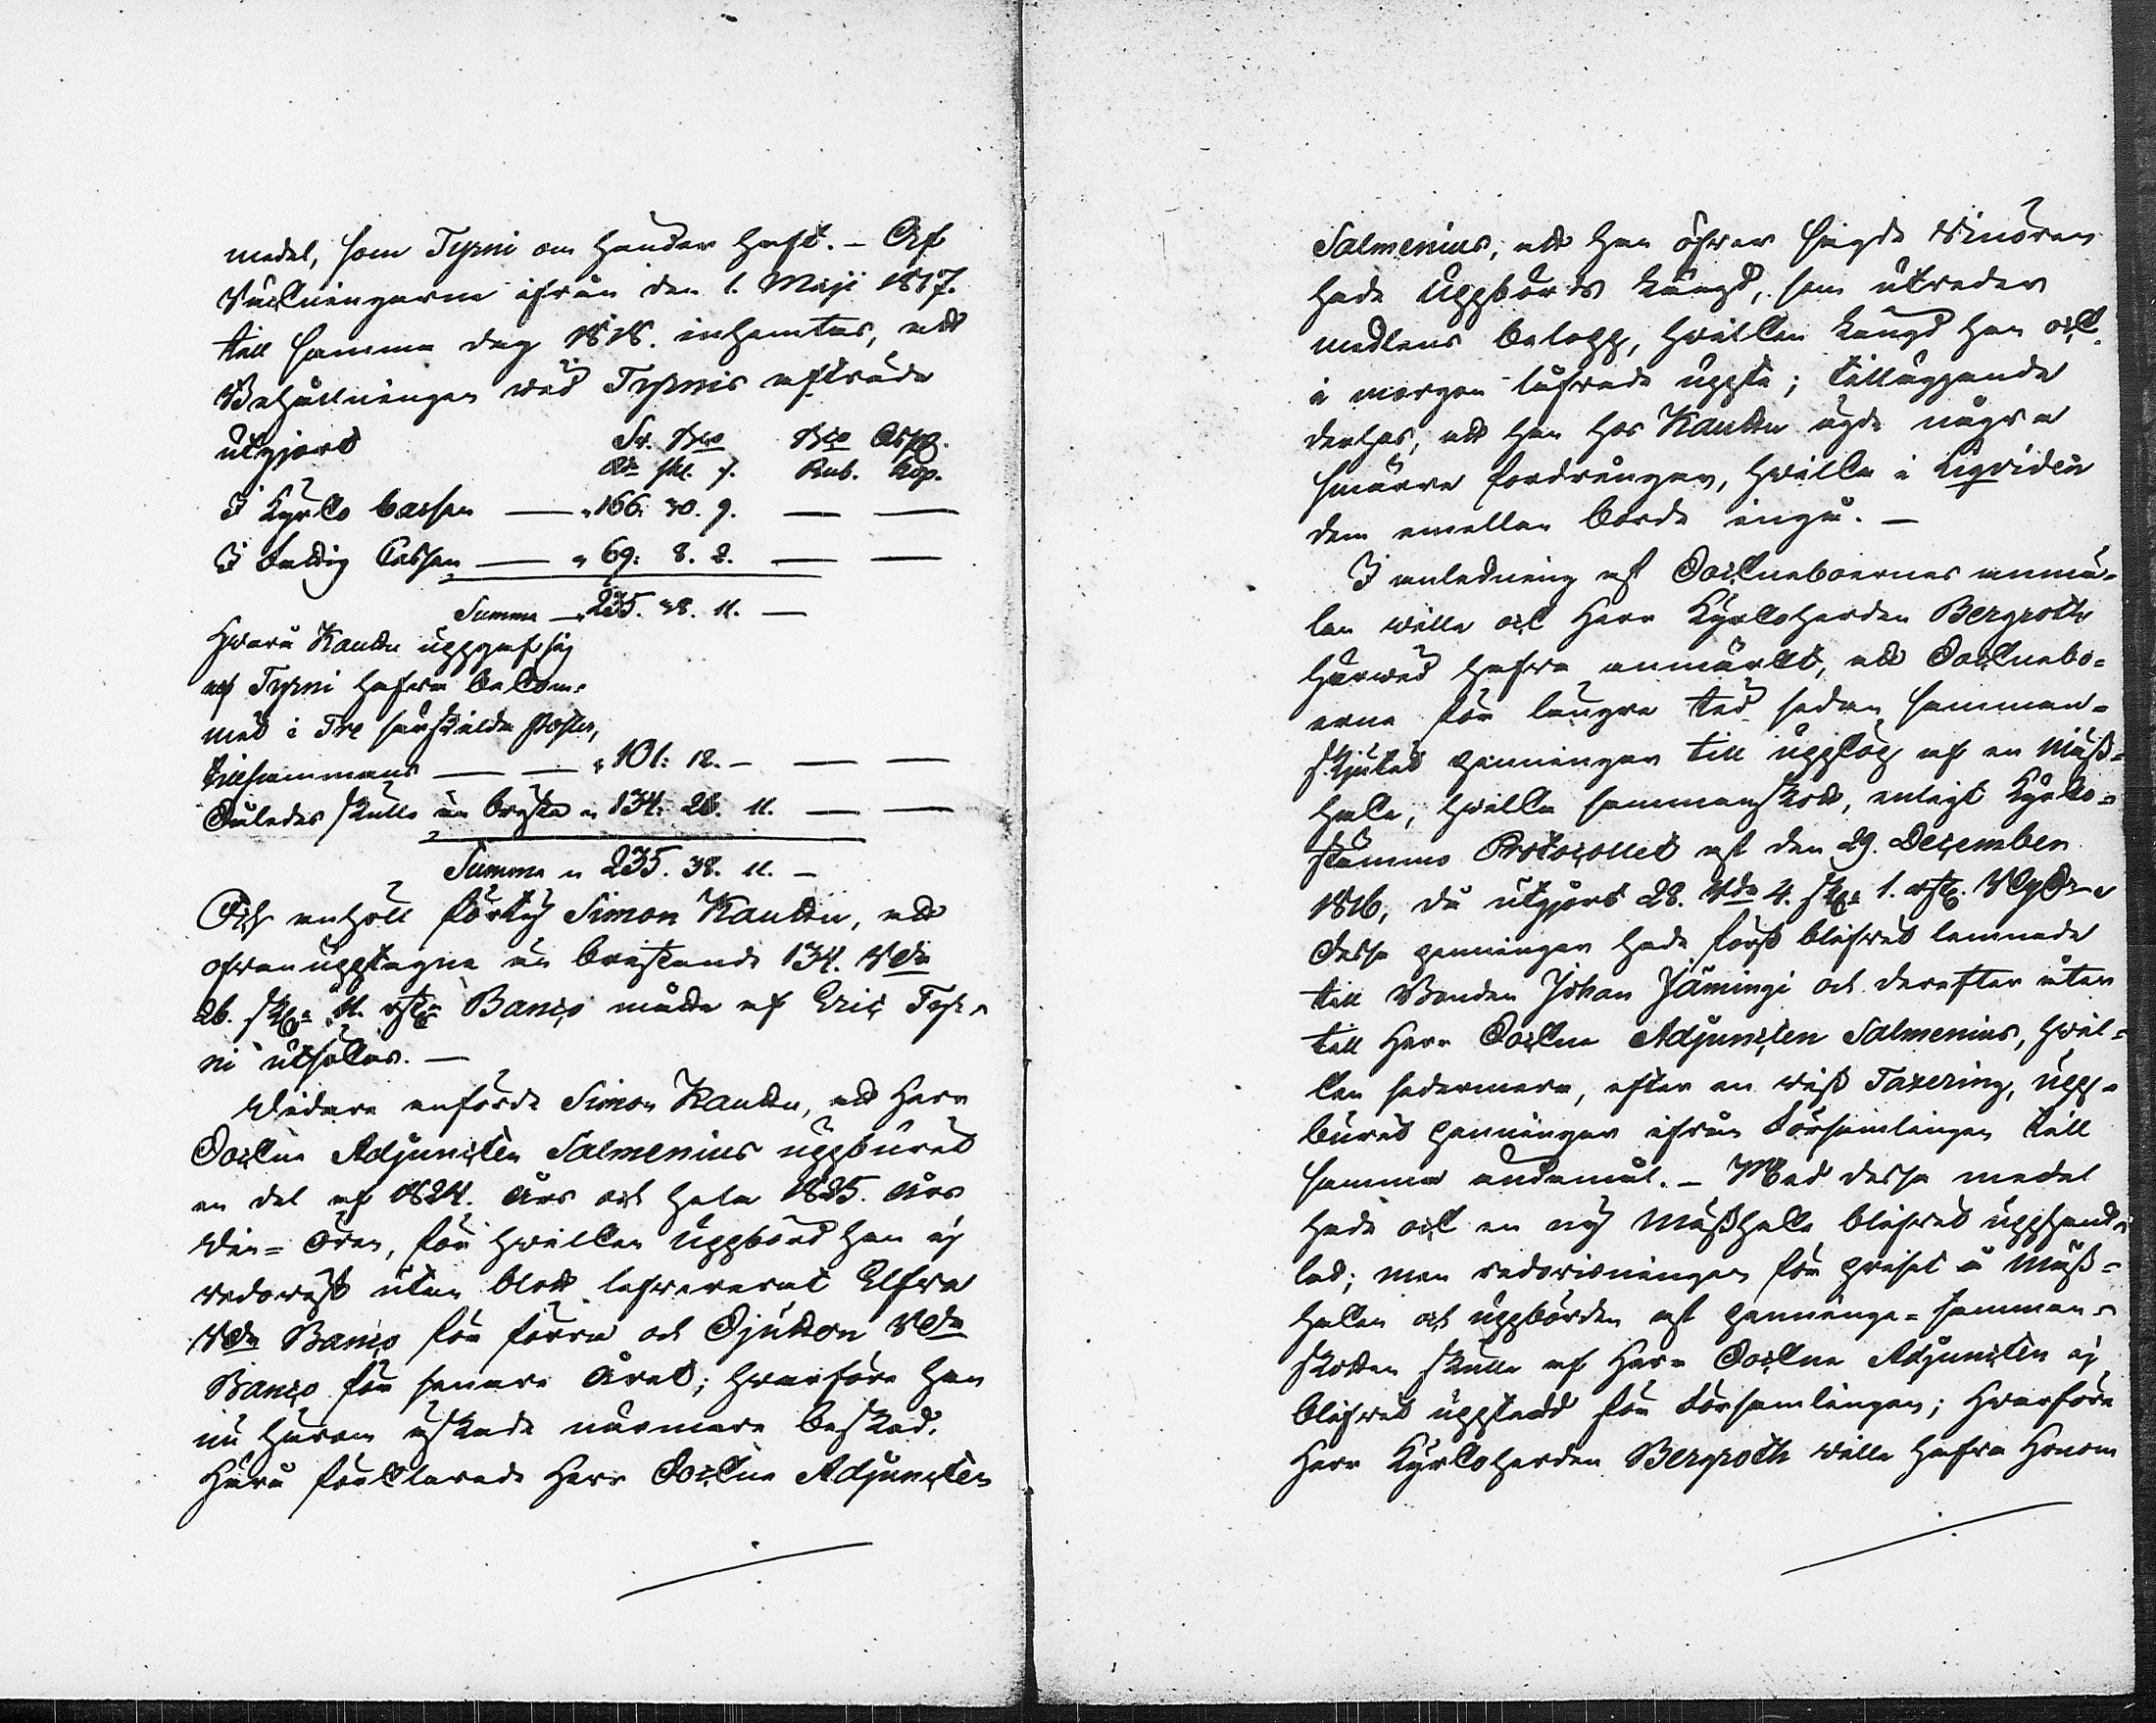 medel, som Tyrni om händer haft. – Af
Räkningarne ifrån den 1. Maji 1817.
till samma dag 1818. inhemtas, att
Behållningen wid Tyrnis afträde
utgjort Sv. Bco Bco Assg.
Rdr skl. r. Rub. Kop.
I Kyrko Cassan — „ 166. 30. 9. — —
I Fattig Cassan — „ 69: 8. 2. — —
Summa — „ 235. 38. 11. —
Hwaraf Kauttu uppgaf sig
af Tyrni hafwa bekom-
mit i Tre särskilda poster,
tillsammans — — „ 101: 12. – — —
Således skulle än brista „ 134: 26. 11. — —
Summa „ 235. 38. 11. –
Och anhöll förty Simon Kauttu, att
ofwanupptagne än bristande 134. Rdr
26. sk. 11. rst. Banco måtte af Eric Tyr-
ni utfällas. —
Widare anförde Simon Kauttu, att Herr
Sockne Adjuncten Salmenius uppburit
en del af 1824. Års och hela 1825. Års
Win-Ören, för hwilken Uppbörd han ej
redovist utan blott lefvererat Elfva
Rdr Banco för förra och Sjutton Rdr
Banco för senare Året; hwarföre han
nu härom äskade närmare beskad.
Härå förklarade Herr Sockne Adjuncten
Salmenius, att han öfver sagde Winören
hade Uppbörds längd, som utreder
medlens belopp, hwilken längd han ock
i morgon lofvade uppte; tilläggande
derhos, att han hos Kauttu ägde några
smärre fordringar, hwilka i Liqviden
dem emellan borde ingå. —
I anledning af Socknboernes anmä-
lan wille ock Herr Kyrkoherden Bergroth
härwid hafva anmärkt, att Socknebo-
erne för längre tid sedan samman-
skjutit penningar till uppköp af en Mäss-
hake, hwilka sammanskott, enligt Kyrko-
stämmo Protocollet af den 29. December
1816, då utgjort 28. Rdr 4. sk. 1. rst.
Dessa penningar hade först blifvit lemnade
till Bonden Johan Jämingi och derefter åter
till Herr Sockne Adjuncten Salmenius, hwil-
ken sedermera, efter en wiss Taxering, upp-
burit penningar ifrån Församlingen till
samma ändamål. – Med dessa medel
hade ock en ny Mässhake blifvit upphand-
lad; men redovisningen för priset å Mäss-
haken och uppbörden af pennings-samman-
skotten skulle af Herr Sockne Adjuncten ej
blifvit uppstädd för Församlingen; hwarföre
Herr Kyrkoherden Bergroth wille hafva Honom